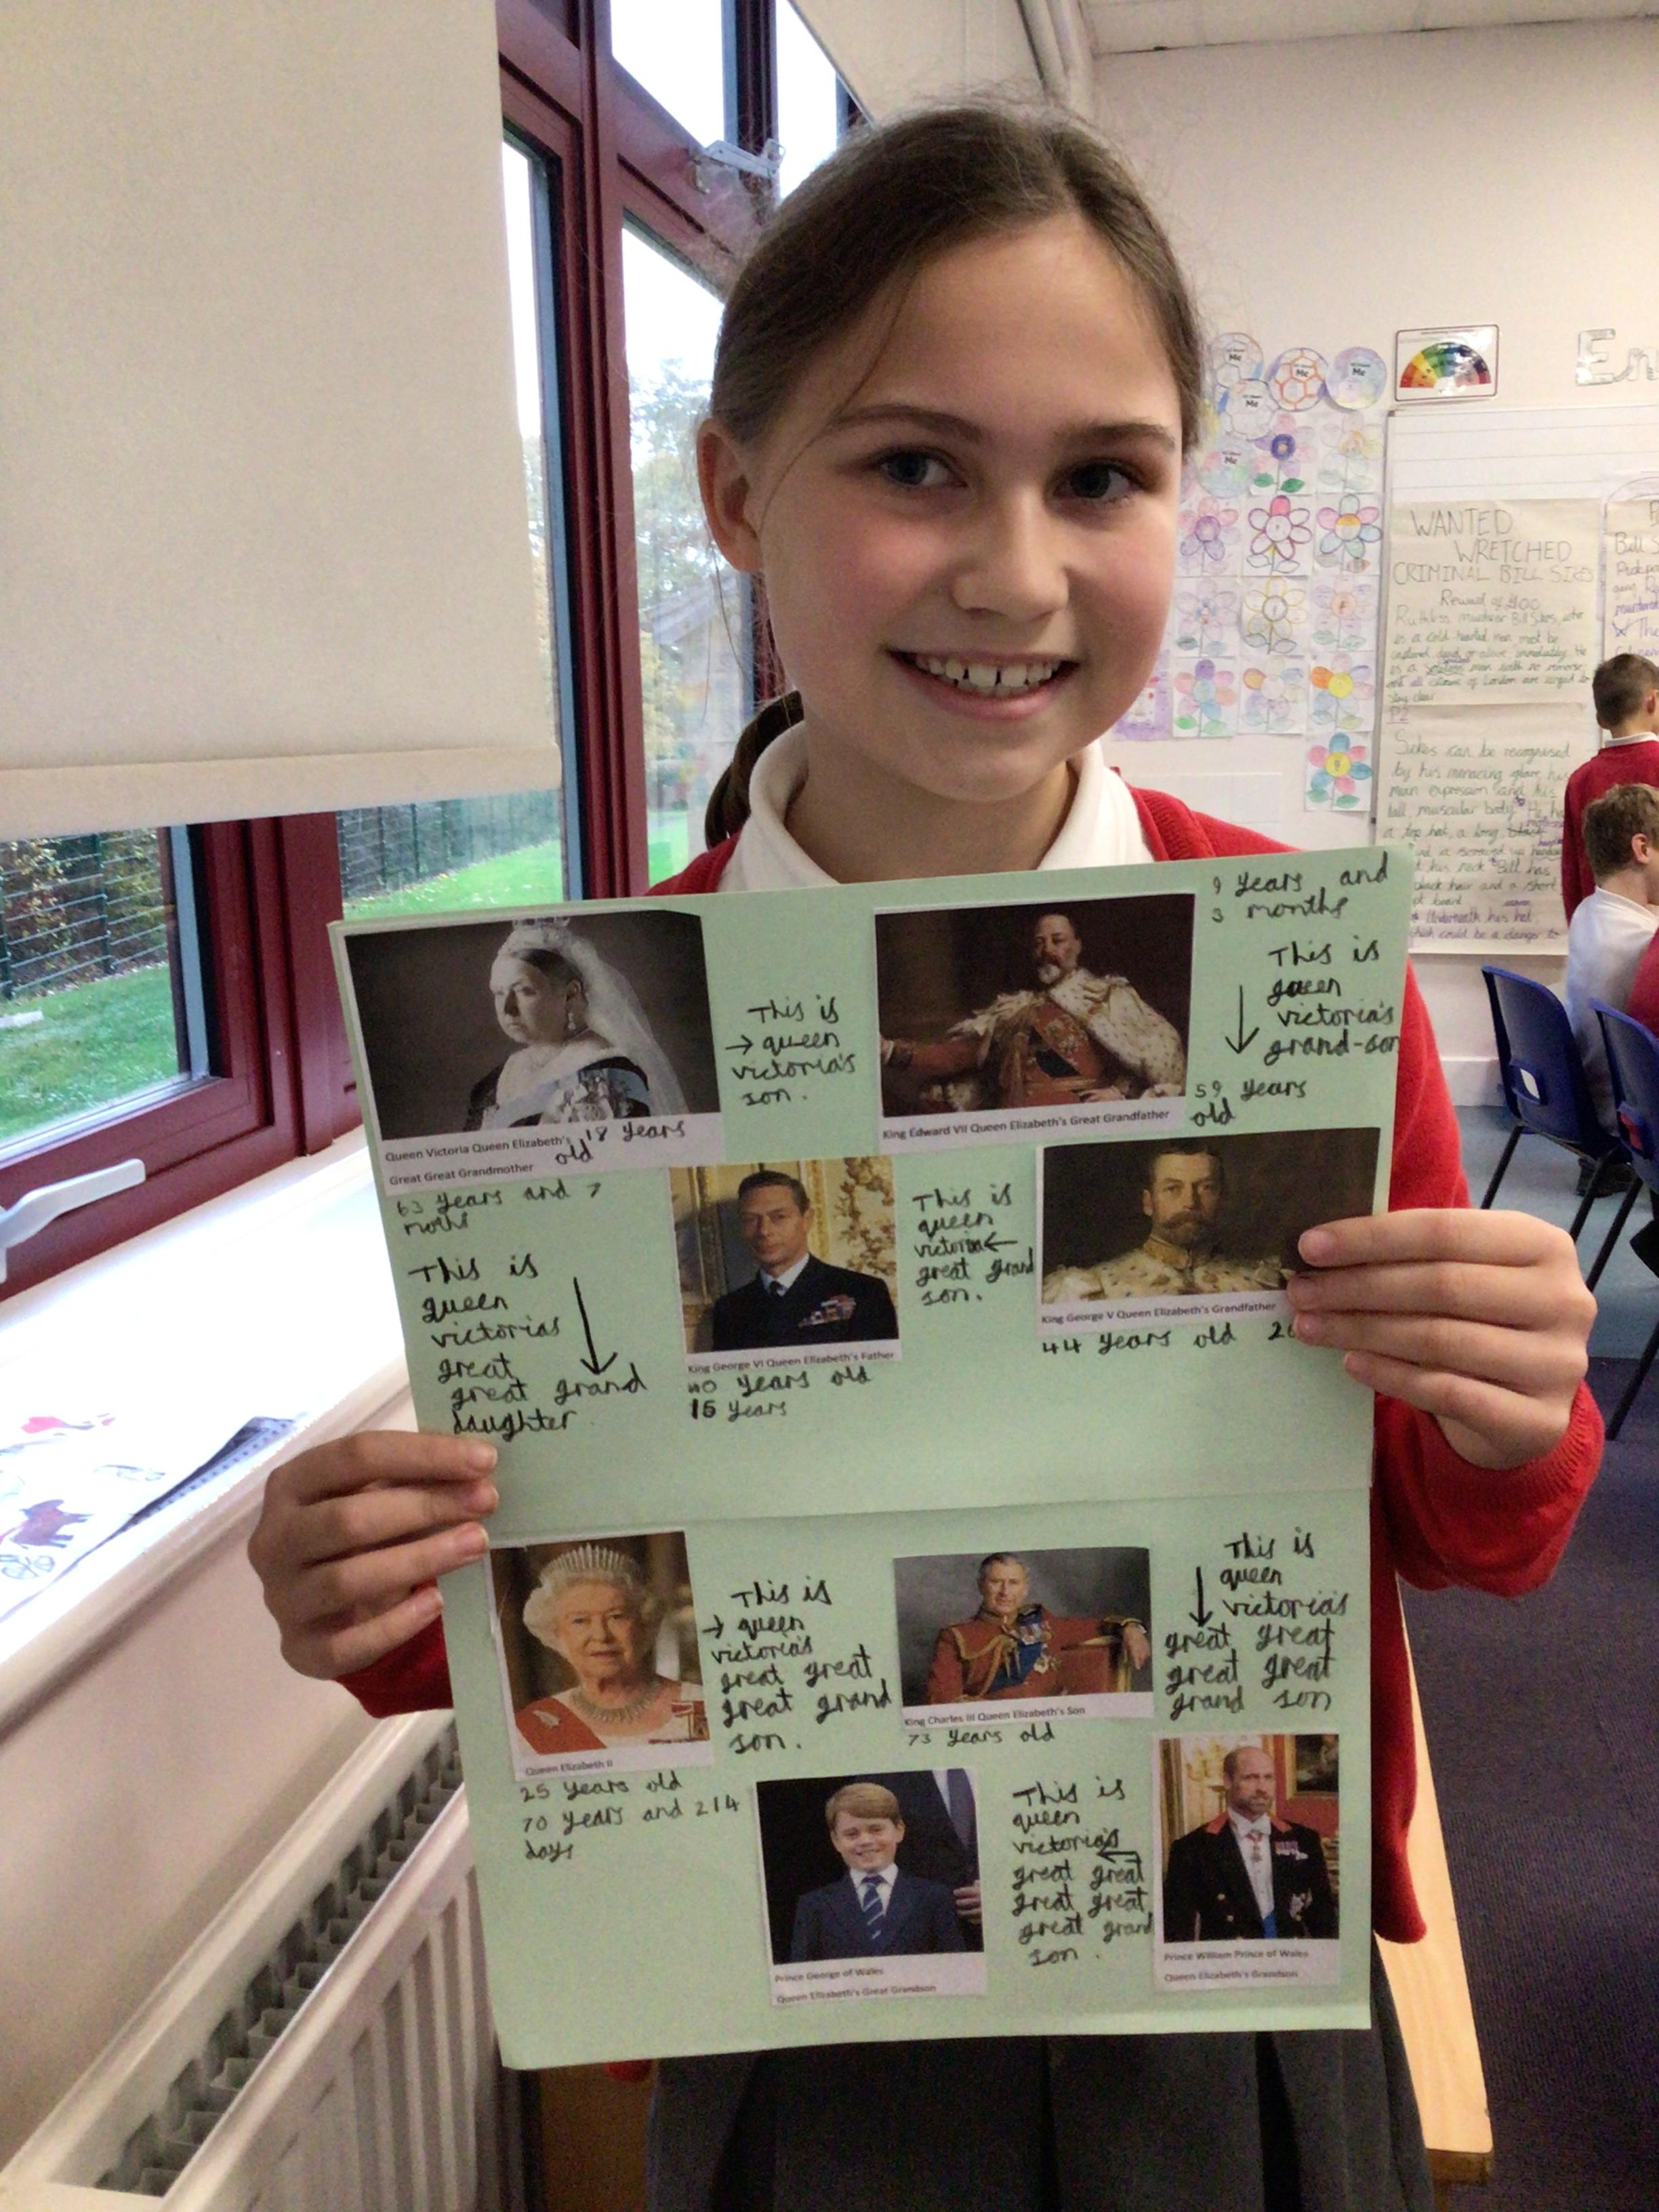 En
Me
Me
Me
Me
Me
WANTED
WRETCHED
CRIMINAL BILL SIKES
Reward of £100
Ruthless murderer Bill Sikes, who
is a cold harted man must be
dead or alive immediately. He
is a man with no remorse
all citizens of London are urged to
stay clear
P2
Sikes can be recognised
by his menacing glare, his
mean expression and his
tall, muscular body. He
a top hat, a long, black
and a screwed up
his neck Bill has
black hair and a short
beard
Underneath his hat
which could be a danger to
Bill S
9 years and
3 months
This is
queen
victoria's
grand-son
This is
→ queen
victoria's
son.
Queen Victoria Queen Elizabeth's
Great Great Grandmother
18 years
old
63 years and 7
moths
King Edward VII Queen Elizabeth's Great Grandfather
59 years
old
This is
queen
victorias
great
great grand
daughter
King George VI Queen Elizabeth's Father
40 years old
15 years
This is
queen
victoria ←
great grand
son.
King George V Queen Elizabeth's Grandfather
44 years old
Queen Elizabeth II
25 years old
70 years and 214
days
This is
→ queen
victoria's
great great
great grand
son.
King Charles III Queen Elizabeth's Son
73 years old
This is
queen
victoria's
great great
great great
grand son
Prince George of Wales
Queen Elizabeth's Great Grandson
This is
queen
victoria's
great great
great great
great grand
son.
Prince William Prince of Wales
Queen Elizabeth's Grandson